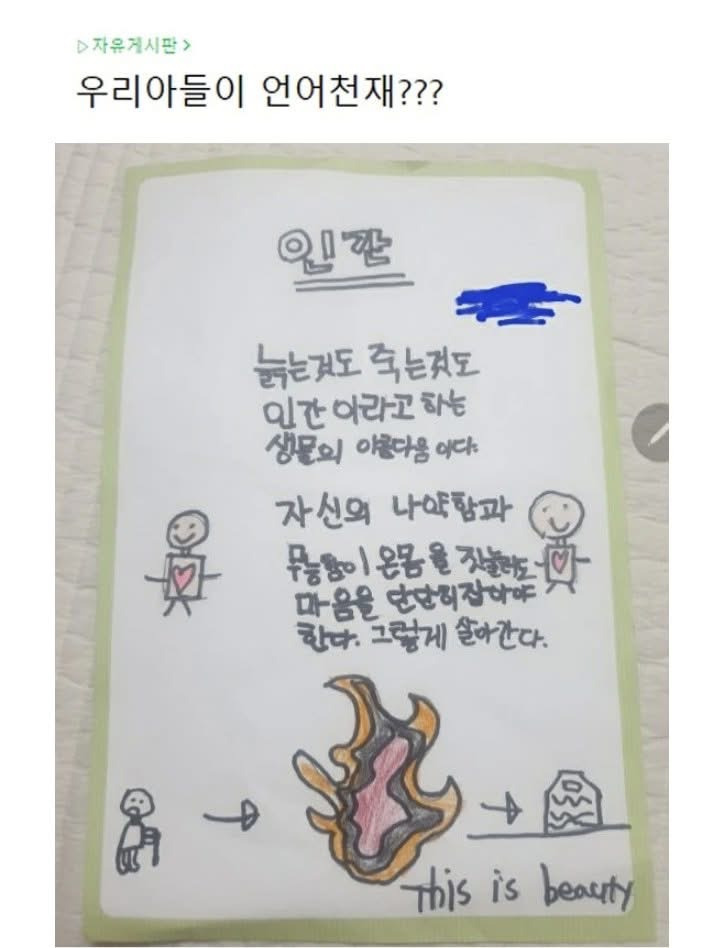 ▷자유게시판 >
우리아들이 언어천재???
인간
늙는것도 죽는것도
인간이라고 하는
생물의 아름다움이다.
자신의 나약함과
무능함이 온몸을 짓눌러도
마음을 단단히잡아야
한다. 그렇게 살아간다.
This is beauty